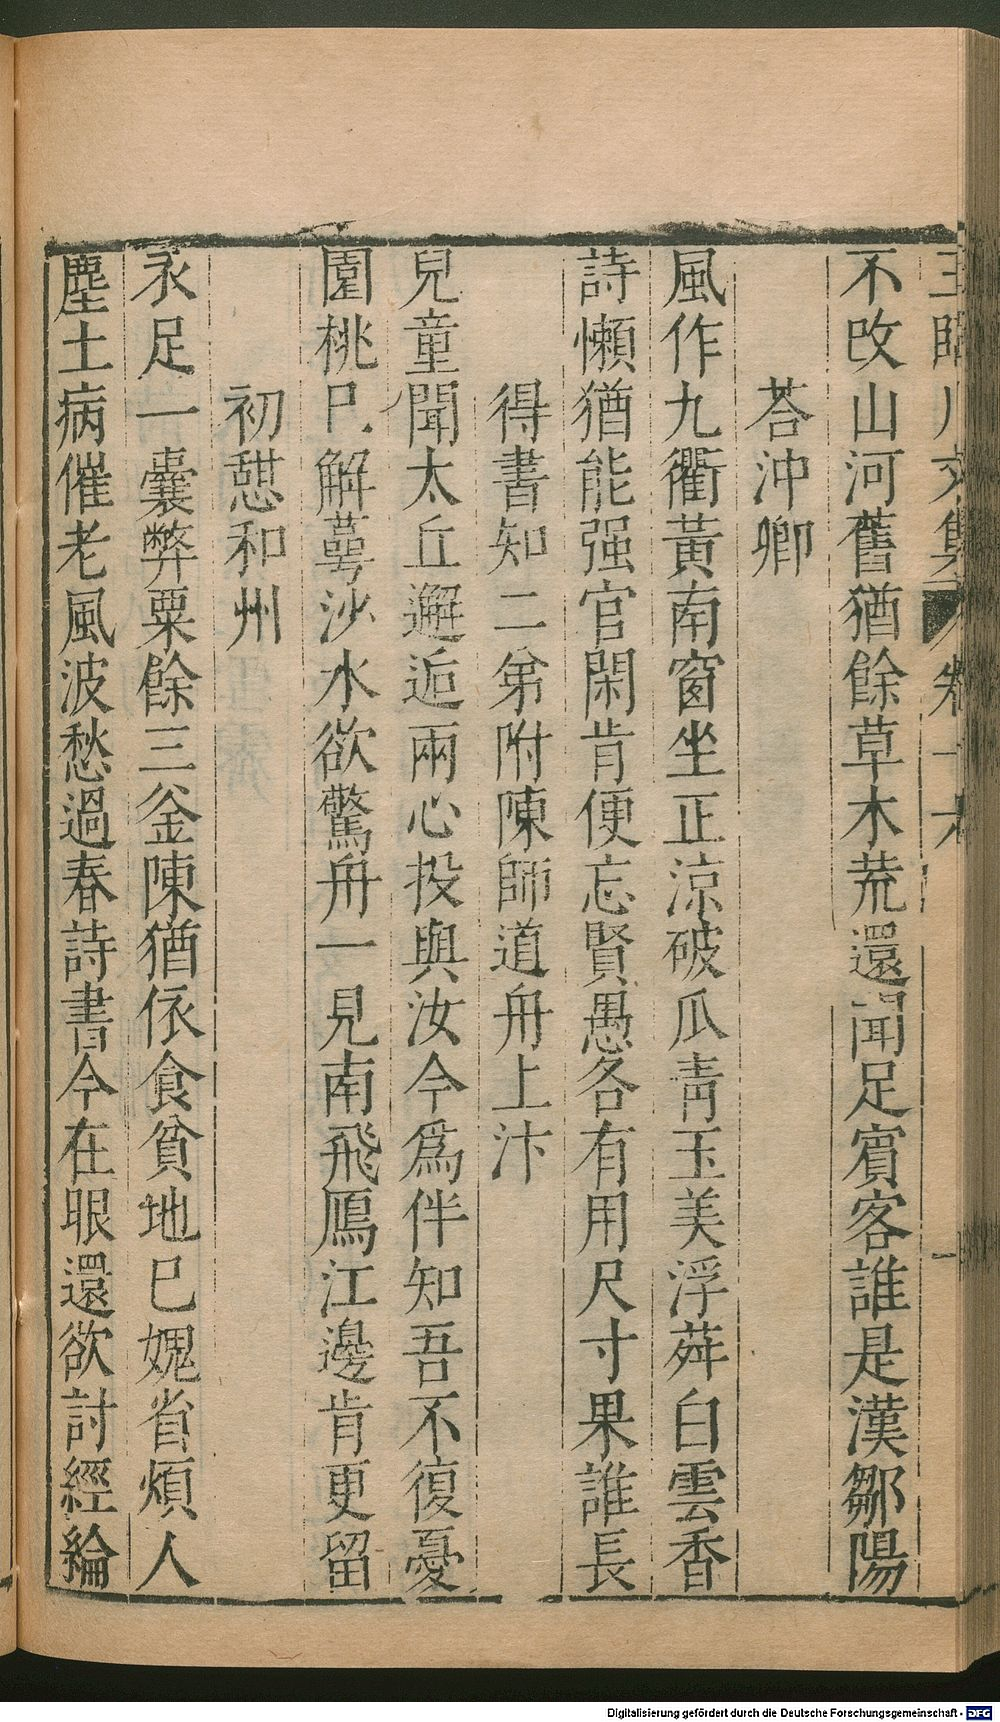 不改山河舊猶餘草木荒還聞足賓客誰是漢鄒陽
荅沖卿
風作九衢黃南窗坐正涼破瓜青玉美浮荈白雲香
詩懶猶能强官閑肯便忘賢愚各有用尺寸果誰長
得書知二弟附陳師道舟上汴
兒童聞太丘邂逅兩心投與汝今爲伴知吾不復憂
園桃已解萼沙水欲驚舟一見南飛鴈江邊肯更留
初憇和州
永足一囊弊粟餘三釜陳猶依食貧地已媿省煩人
塵土病催老風波愁過春詩書今在眼還欲討經綸
Digitalisierung gefördert durch die Deutsche Forschungsgemeinschaft - DFG